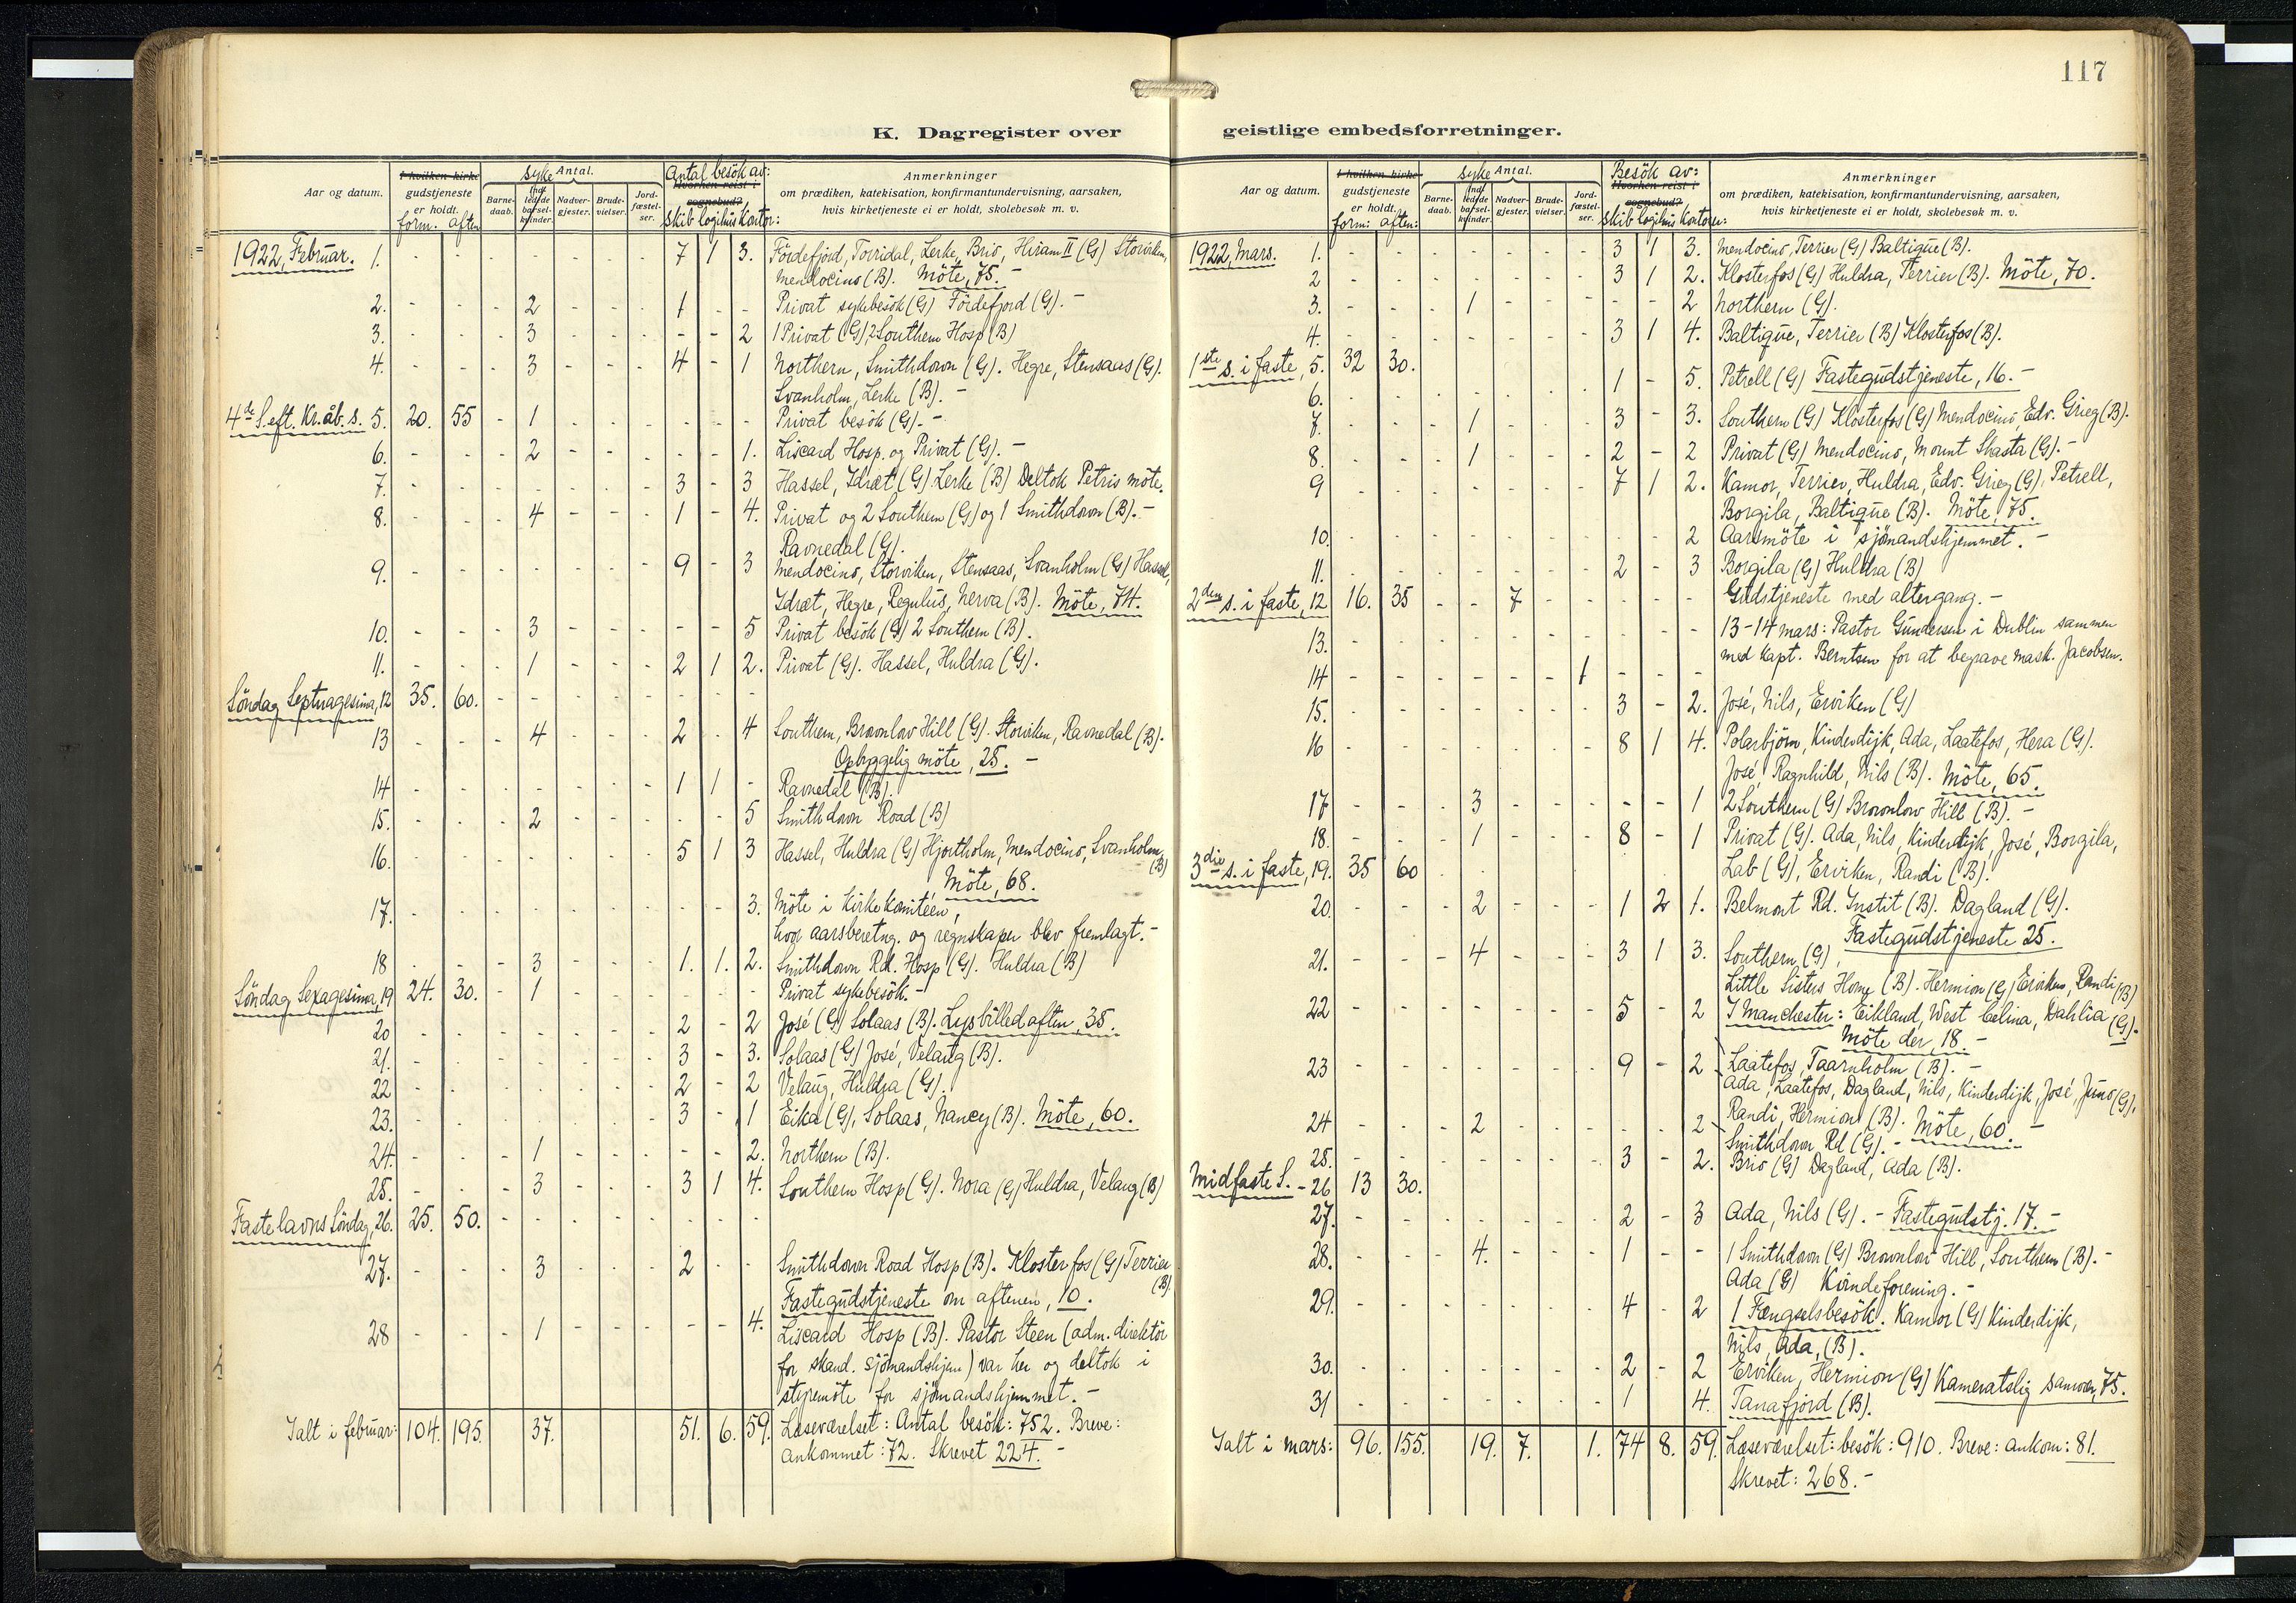 117
K. Dagregister over
Aar og datum.
I hvilken kirke
gudstjeneste
er holdt.
form. aften
syke Antal.
Barne-
daab.
Ind-
ledede
barsel-
kvinder.
Nadver-
gjester.
Brude-
vielser.
Jord-
fæstel-
ser.
Antal besök av:
Hvorhen reist i
sognebud?
Skib Logihus Kontor:
Anmerkninger
om prædiken, katekisation, konfirmantundervisning, aarsaken,
hvis kirketjeneste ei er holdt, skolebesøk m. v.
1922, Februar. 1. - - - - - - - - 7 1 3. Fördefjord, Torridal, Lerke, Brio, Hiram II (G) Storviken,
Mendocino (B). Möte, 75. -
2. - - - 2 - - - 1 - - Privat sykebesök (G) Fördefjord (G). -
3. - - - 3 - - - - - 2 1 Privat (G), 2 Southern Hosp (B)
4. - - - 3 - - - 4 - 1 Northern, Smithdown (G). Hegre, Stensaas (G).
Svanholm, Lerke (B). -
4de S. eft. Kr. åb. s. 5. 20. 55 - 1 - - - - - - Privat besök (G). -
6. - - - 2 - - - - - 1. Liscard Hosp. og Privat (G). -
7. - - - - - - - 3 - 3 Hassel, Idræt (G) Lerke (B) Deltok Petris möte.
8. - - - 4 - - - 1 - 4. Privat og 2 Southern (G) og 1 Smithdown (B). -
Ravnedal (G).
9. - - - - - - - 9 - 3 Mendocino, Storviken, Stensaas, Svanholm (G) Hassel,
Idræt, Hegre, Regulus, Nerva (B). Möte, 74.
10. - - - 3 - - - - - 5 Privat besök (G) 2 Southern (B).
11. - - - 1 - - - 2 1 2. Privat (G). Hassel, Huldra (G).
Söndag Septuagesima, 12 35. 60. - - - - - - - -
13 - - - 4 - - - 2 - 4 Southern, Brownlow Hill (G). Storviken, Ravnedal (B).
Opbyggelig möte, 25. -
14 - - - - - - - 1 1 - Ravnedal (B).
15. - - - 2 - - - - - 5 Smithdown Road (B)
16. - - - - - - - 5 1 3 Hassel, Huldra (G) Hjortholm, Mendocino, Svanholm,
(B)
Möte, 68.
17. - - - - - - - - - 3. Möte i Kirkekomitéen,
hvor aarsberetng. og regnskaper blev fremlagt. -
18 - - - 3 - - - 1. 1. 2. Smithdown Rd. Hosp (G). Huldra (B)
Söndag Sexagesima, 19 24. 30. - 1 - - - - - - Privat sykebesök. -
20 - - - - - - - 2 - 2 José (G) Solaas (B). Lysbilledaften, 35.
21. - - - - - - - 3 - 3. Solaas (G) José, Velaug (B).
22 - - - - - - - 2 - 2 Velaug, Huldra (G).
23. - - - - - - - 3 - 1 Eika (G), Solaas, Nancy (B). Möte, 60.
24. - - - 1 - - - - - 2. Northern (B).
25. - - - 3 - - - 3 1 4. Southern Hosp (G). Nora (G) Huldra, Velaug (B)
Fastelavns Söndag, 26. 25. 50. - - - - - - - -
27. - - - 3 - - - 2 - - Smithdown Road Hosp (B). Klosterfos (G) Terrier
(B)
Fastegudstjeneste om aftenen, 10.
28 - - - 1 - - - - - 4. Liscard Hosp (B). Pastor Steen (adm. direktör
for skand. sjömandshjem) var her og deltok i
styremöte for sjömandshjemmet. -
Ialt i februar: 104. 195. 37. 51. 6. 59. Læseværelset: Antal besök: 752. Breve:
ankommet: 72. Skrevet 224. -
geistlige embedsforretninger.
Aar og datum.
I hvilken kirke
gudstjeneste
er holdt.
form: aften:
syke Antal.
Barne-
daab.
Ind-
ledede
barsel-
kvinder.
Nadver-
gjester.
Brude-
vielser.
Jord-
fæstel-
ser.
Besök av:
Hvorhen reist i
sognebud?
Skib Logihus Kontor:
Anmerkninger
om prædiken, katekisation, konfirmantundervisning, aarsaken,
hvis kirketjeneste ei er holdt, skolebesøk m. v.
1922, Mars. 1. - - - - - - - 3 1 3. Mendocino, Terrier (G) Baltique (B).
2 - - - - - - - 3 1 2. Klosterfos (G) Huldra, Terrier (B). Möte, 70.
3. - - - 1 - - - - - 2 Northern (G).
4. - - - - - - - 3 1 4. Baltique, Terrier (B) Klosterfos (B).
1ste s. i faste, 5. 32 30.
6. 1 - 5. Petrell (G) Fastegudstjeneste, 16. -
7. - - - 1 - - - 3 - 3. Southern (G) Klosterfos (G) Mendocino, Edv. Grieg (B).
8. - - - 1 - - - 2 - 2 Privat (G) Mendocino, Mount Shasta (G). -
9 - - - - - - - 7 1 2. Kamor, Terrier, Huldra, Edv. Grieg (G), Petrell,
Borgila, Baltique (B). Möte, 75.
10. - - - - - - - - - 2 Aarsmöte i sjömandshjemmet. -
11. - - - - - - - 2 - 3 Borgila (G) Huldra (B)
2den s. i faste, 12 16. 35 - - 7 - - - - - Gudstjeneste med altergang. -
13. - - - - - - - - - - 13-14 mars: Pastor Gundersen i Dublin sammen
med kapt. Berntsen for at begrave mask. Jacobsen.
14 - - - - - - 1 - - -
15. - - - - - - - 3 - 2. José, Nils, Erviken (G)
16 - - - - - - - 8 1 4. Polarbjörn, Kinderdijk, Ada, Laatefos, Hera (G).
José, Ragnhild, Nils (B). Möte, 65.
17 - - - 3 - - - - - 1 2 Southern (G) Brownlow Hill (B). -
18. - - - 1 - - - 8 - 1 Privat (G). Ada, Nils, Kinderdijk, José, Borgila,
Lab (G), Erviken, Randi (B).
3die s. i faste, 19. 35 60
20. - - - 2 - - - 1 2 1. Belmont Rd. Instit (B). Dagland (G).
Fastegudstjeneste 25.
21. - - - 4 - - - 3 1 3. Southern (G),
Little Sisters Home (B). Hermion (G) Erviken, Randi (B)
22 - - - - - - - 5 - 2 I Manchester: Eikland, West Celina, Dahlia (G).
Möte der, 18. -
23 - - - - - - - 9 - 2 Laatefos, Taarnholm (B). -
Ada, Laatefos, Dagland, Nils, Kinderdijk, José, Juno (G),
Randi, Hermion (B). Möte, 60. -
24 - - - 2 - - - - - 2 Smithdown Rd (G). -
25. - - - - - - - 3 - 2. Brio (G) Dagland, Ada (B).
Midfaste S. - 26 13 30.
27. - - - - - - - 2 - 3 Ada, Nils (G). - Fastegudstj. 17. -
28. - - - 4. - - - 1 - - 1 Smithdown (G) Brownlow Hill, Southern (B). -
Ada (G) Kvindeforening. -
29. - - - - - - - 4 - 2 1 Fængselsbesök. Kamor (G) Kinderdijk,
Nils, Ada, (B).
30. - - - - - - - 2 - 2 Erviken, Hermion (G) Kameratslig samvær, 75.
31 - - - - - - - 1 4. Tanafjord (B).
Ialt i mars: 96. 155. 19. 7. 1. 74 8. 59. Læseværelset: besök: 910. Breve: ankom: 81.
Skrevet: 268. -